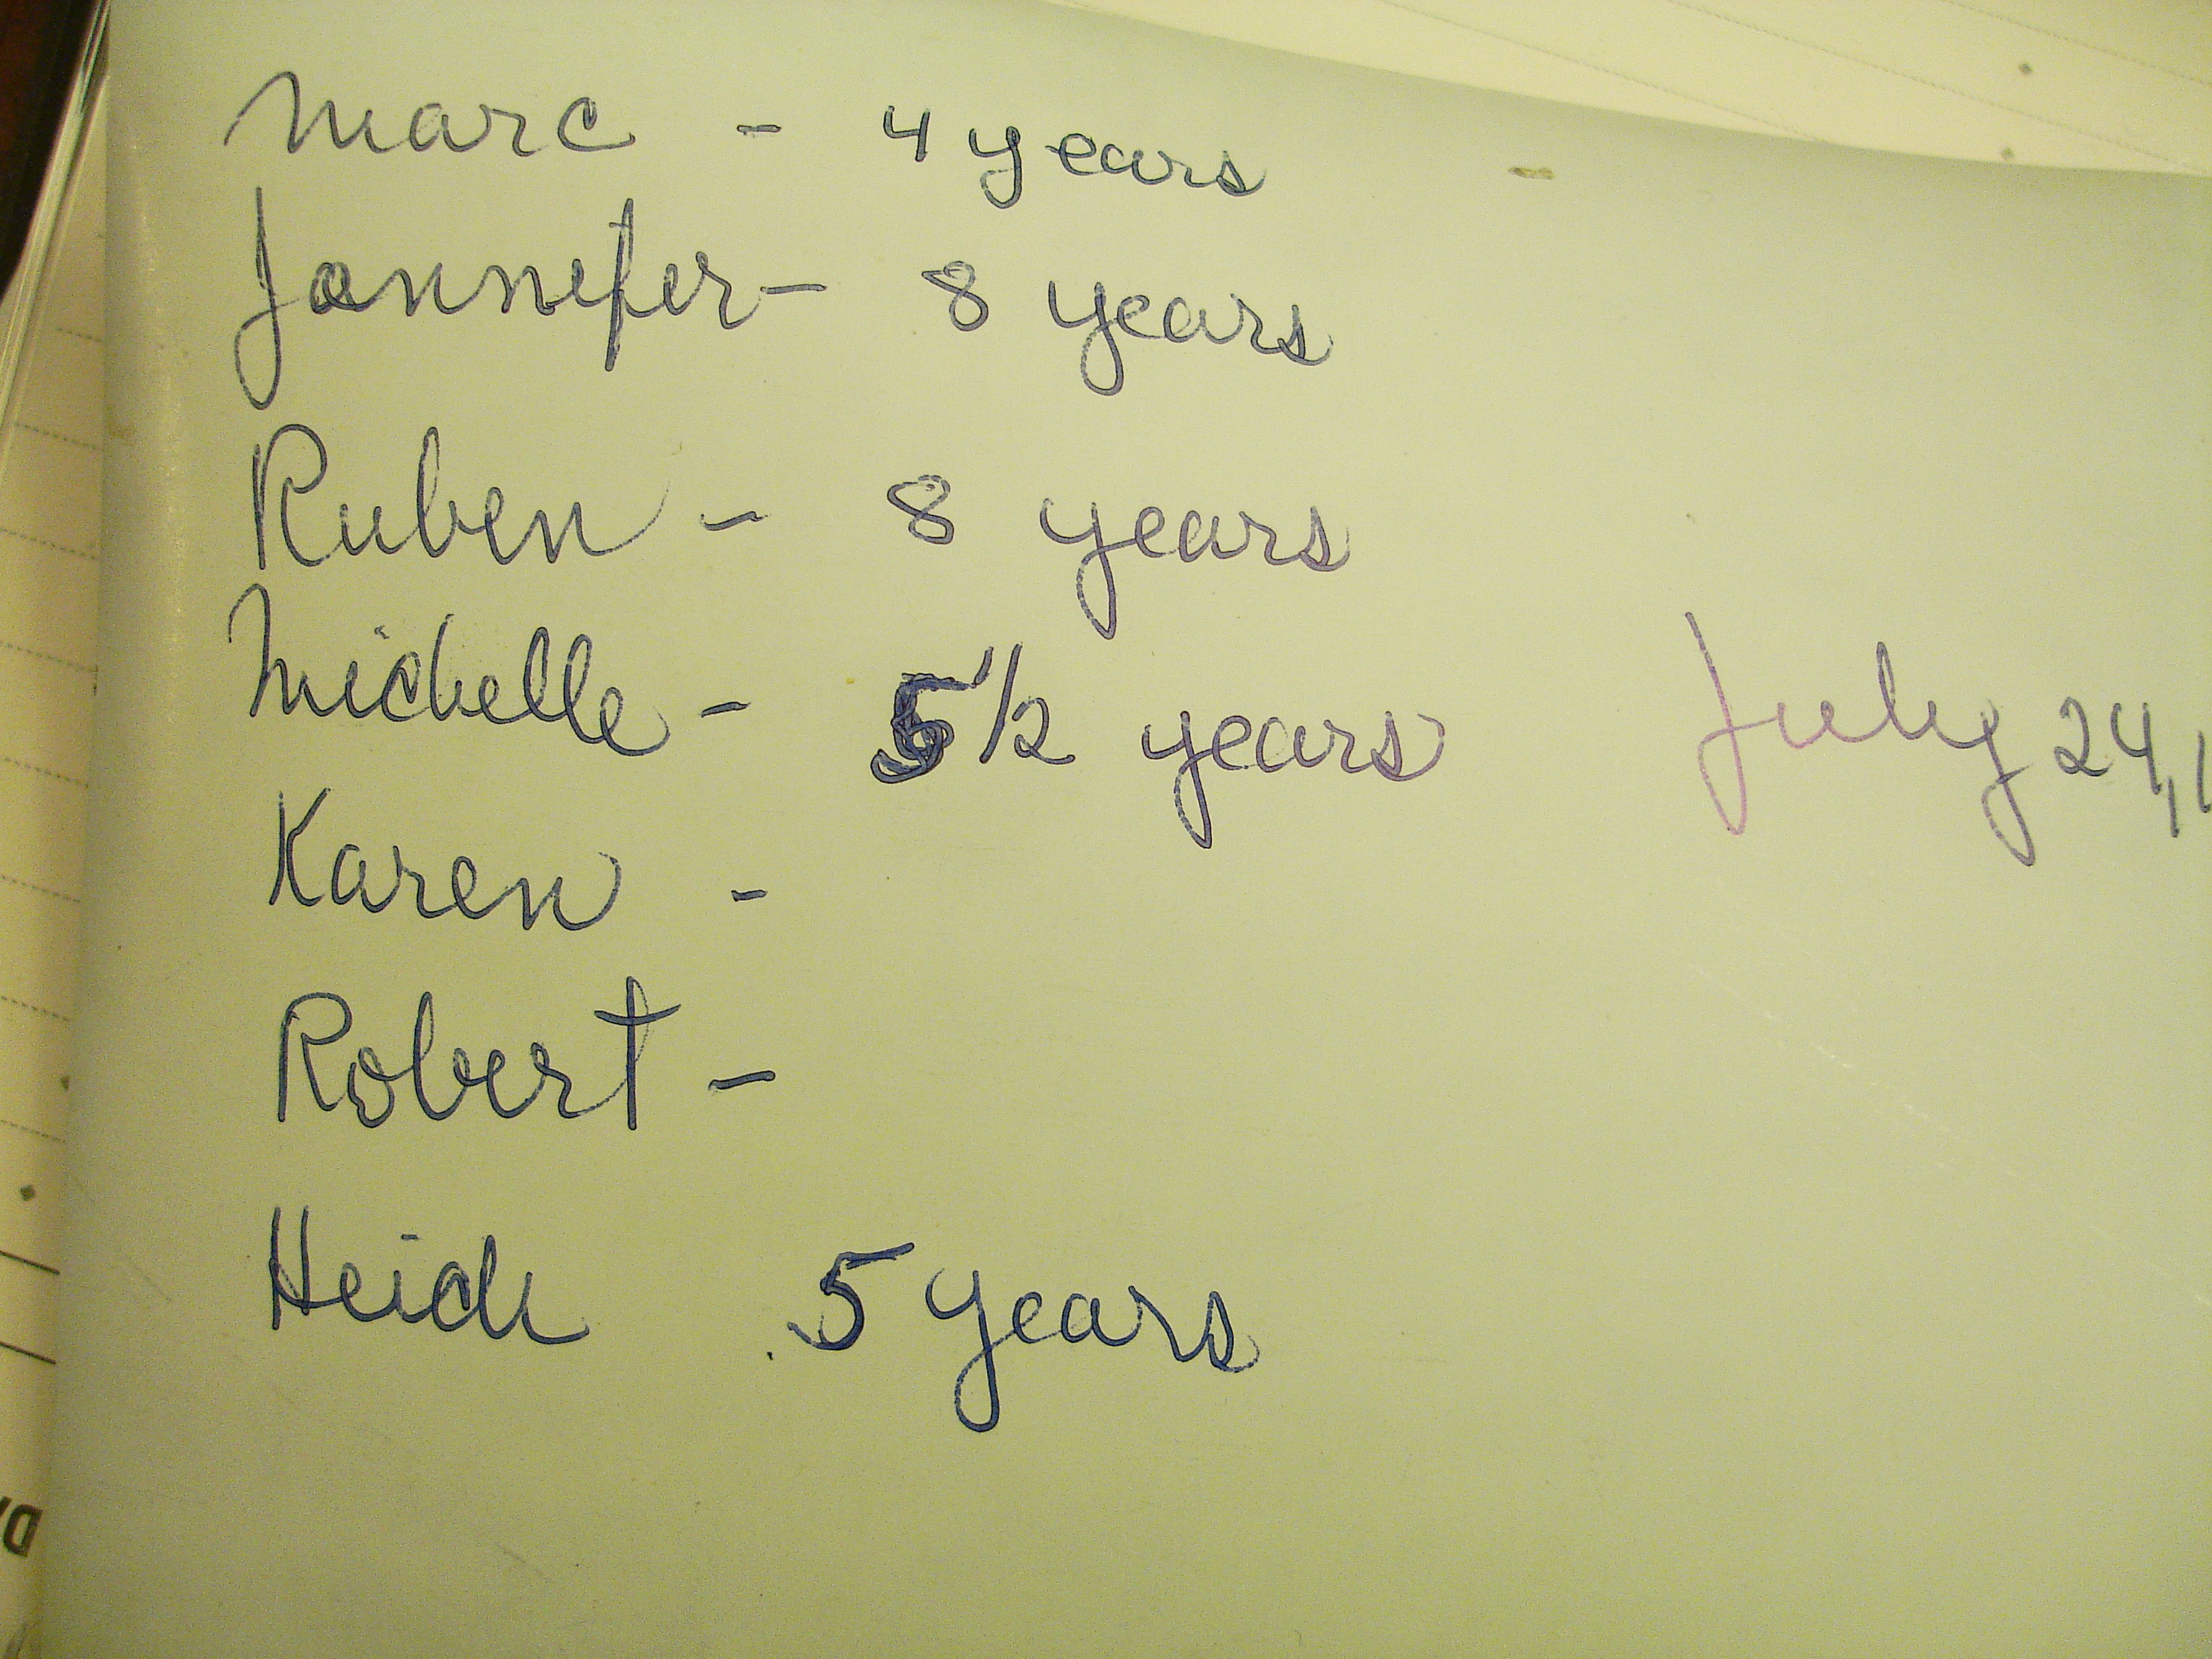 Marc - 4 years -
Jonnefer - 8 years
Ruben - 8 years
Michelle - 5 1/2 years July 24, 1
Karen -
Robert -
Heidi 5 years